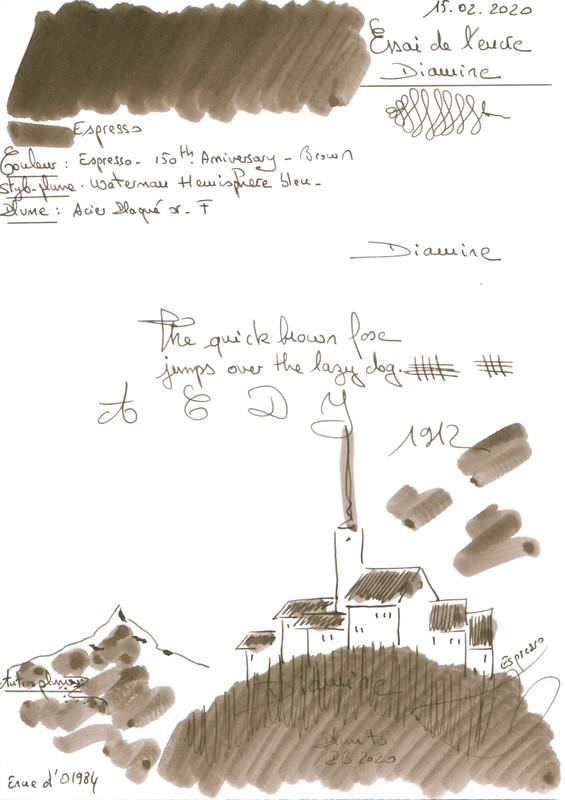 15.02.2020
Essai de l'encre
Diamine
Espresso
Couleur : Espresso - 150th Aniversary - Brown
Stylo-plume : Waterman Hemisphere bleu -
Plume : Acier plaqué or - F
Diamine
The quick brown fox
jumps over the lazy dog.
A E D Y
1912
Espresso
Diamine
2020
Encre d'01984